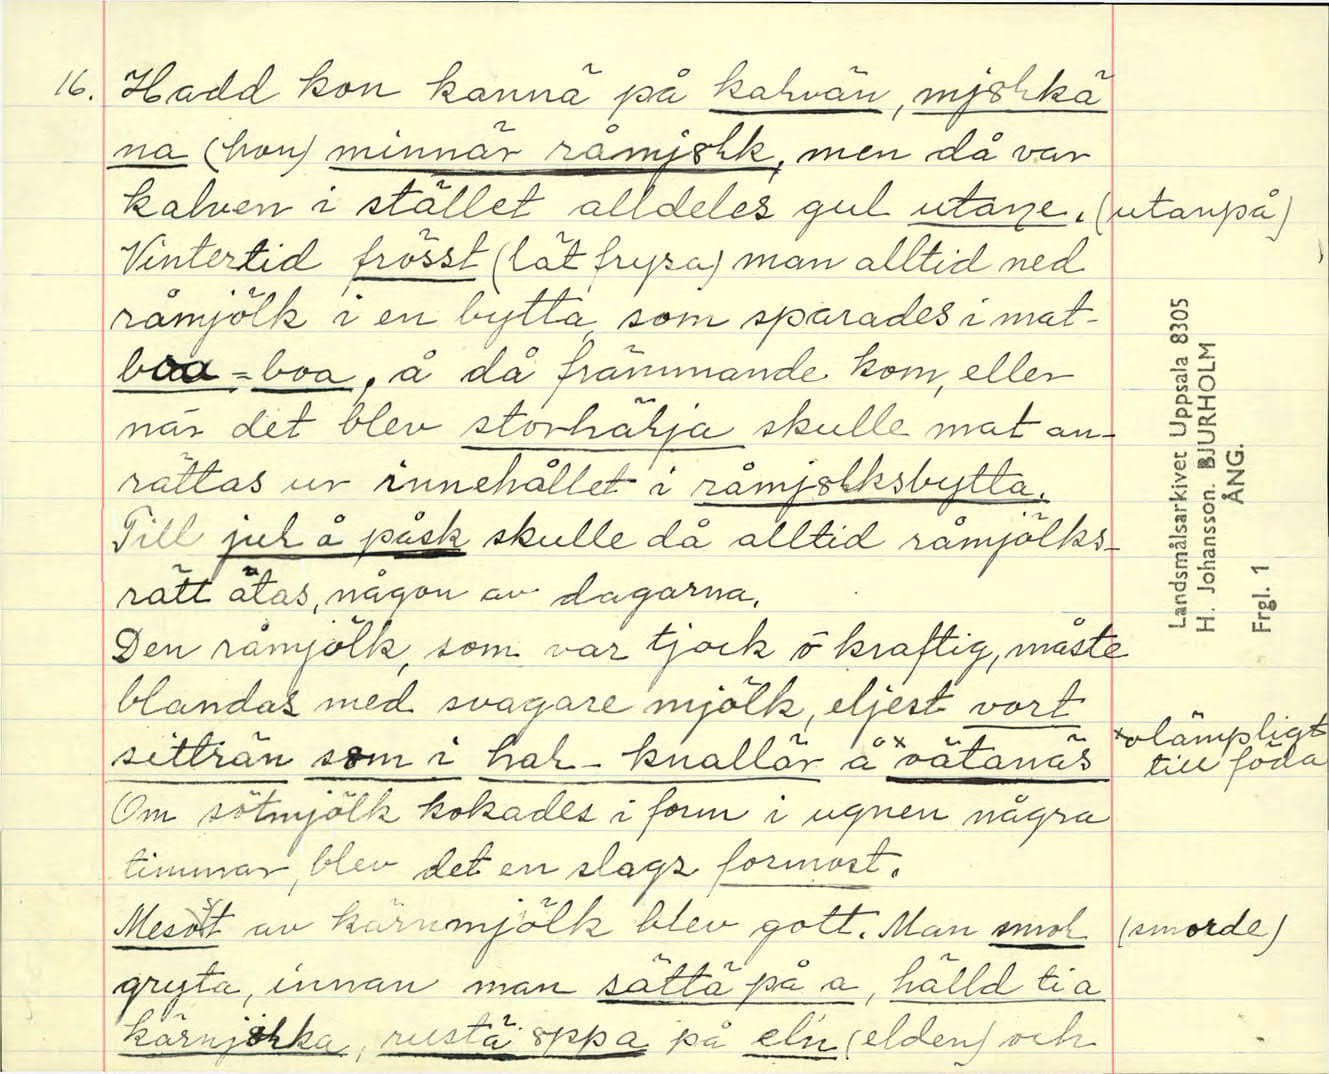 16. Hadd kon kannä på kahvän, mjȣhkä
na (hon) minnär råmjȣhk, men då var
kalven i stället alldeles gul utane. (utanpå)
Vintertid frösst (lät frysa) man alltid ned
råmjölk i en bytta, som sparades i mat-
boa = boa, å då främmande kom, eller
när det blev storhähja skulle mat an-
rättas ur innehållet i råmjȣhksbytta.
Till juh å påsk skulle då alltid råmjölks-
rätt ätas, någon av dagarna.
Den råmjölk, som var tjock o kraftig, måste
blandas med svagare mjölk, eljest vort
sitträn som i hah-knallär å xoätanäs xolämpligt
till föda
Om sötmjölk kokades i form i ugnen några
timmar, blev det en slags formost.
Mesost av kärnmjölk blev gott. Man smoh (smorde)
gryta, innan man sättä på a, hälld ti a
kärnjȣhka, rustä ȣppa på eln (elden) och
Landsmålsarkivet Uppsala 8305
H. Johansson. BJURHOLM
ÅNG.
Frgl. 1